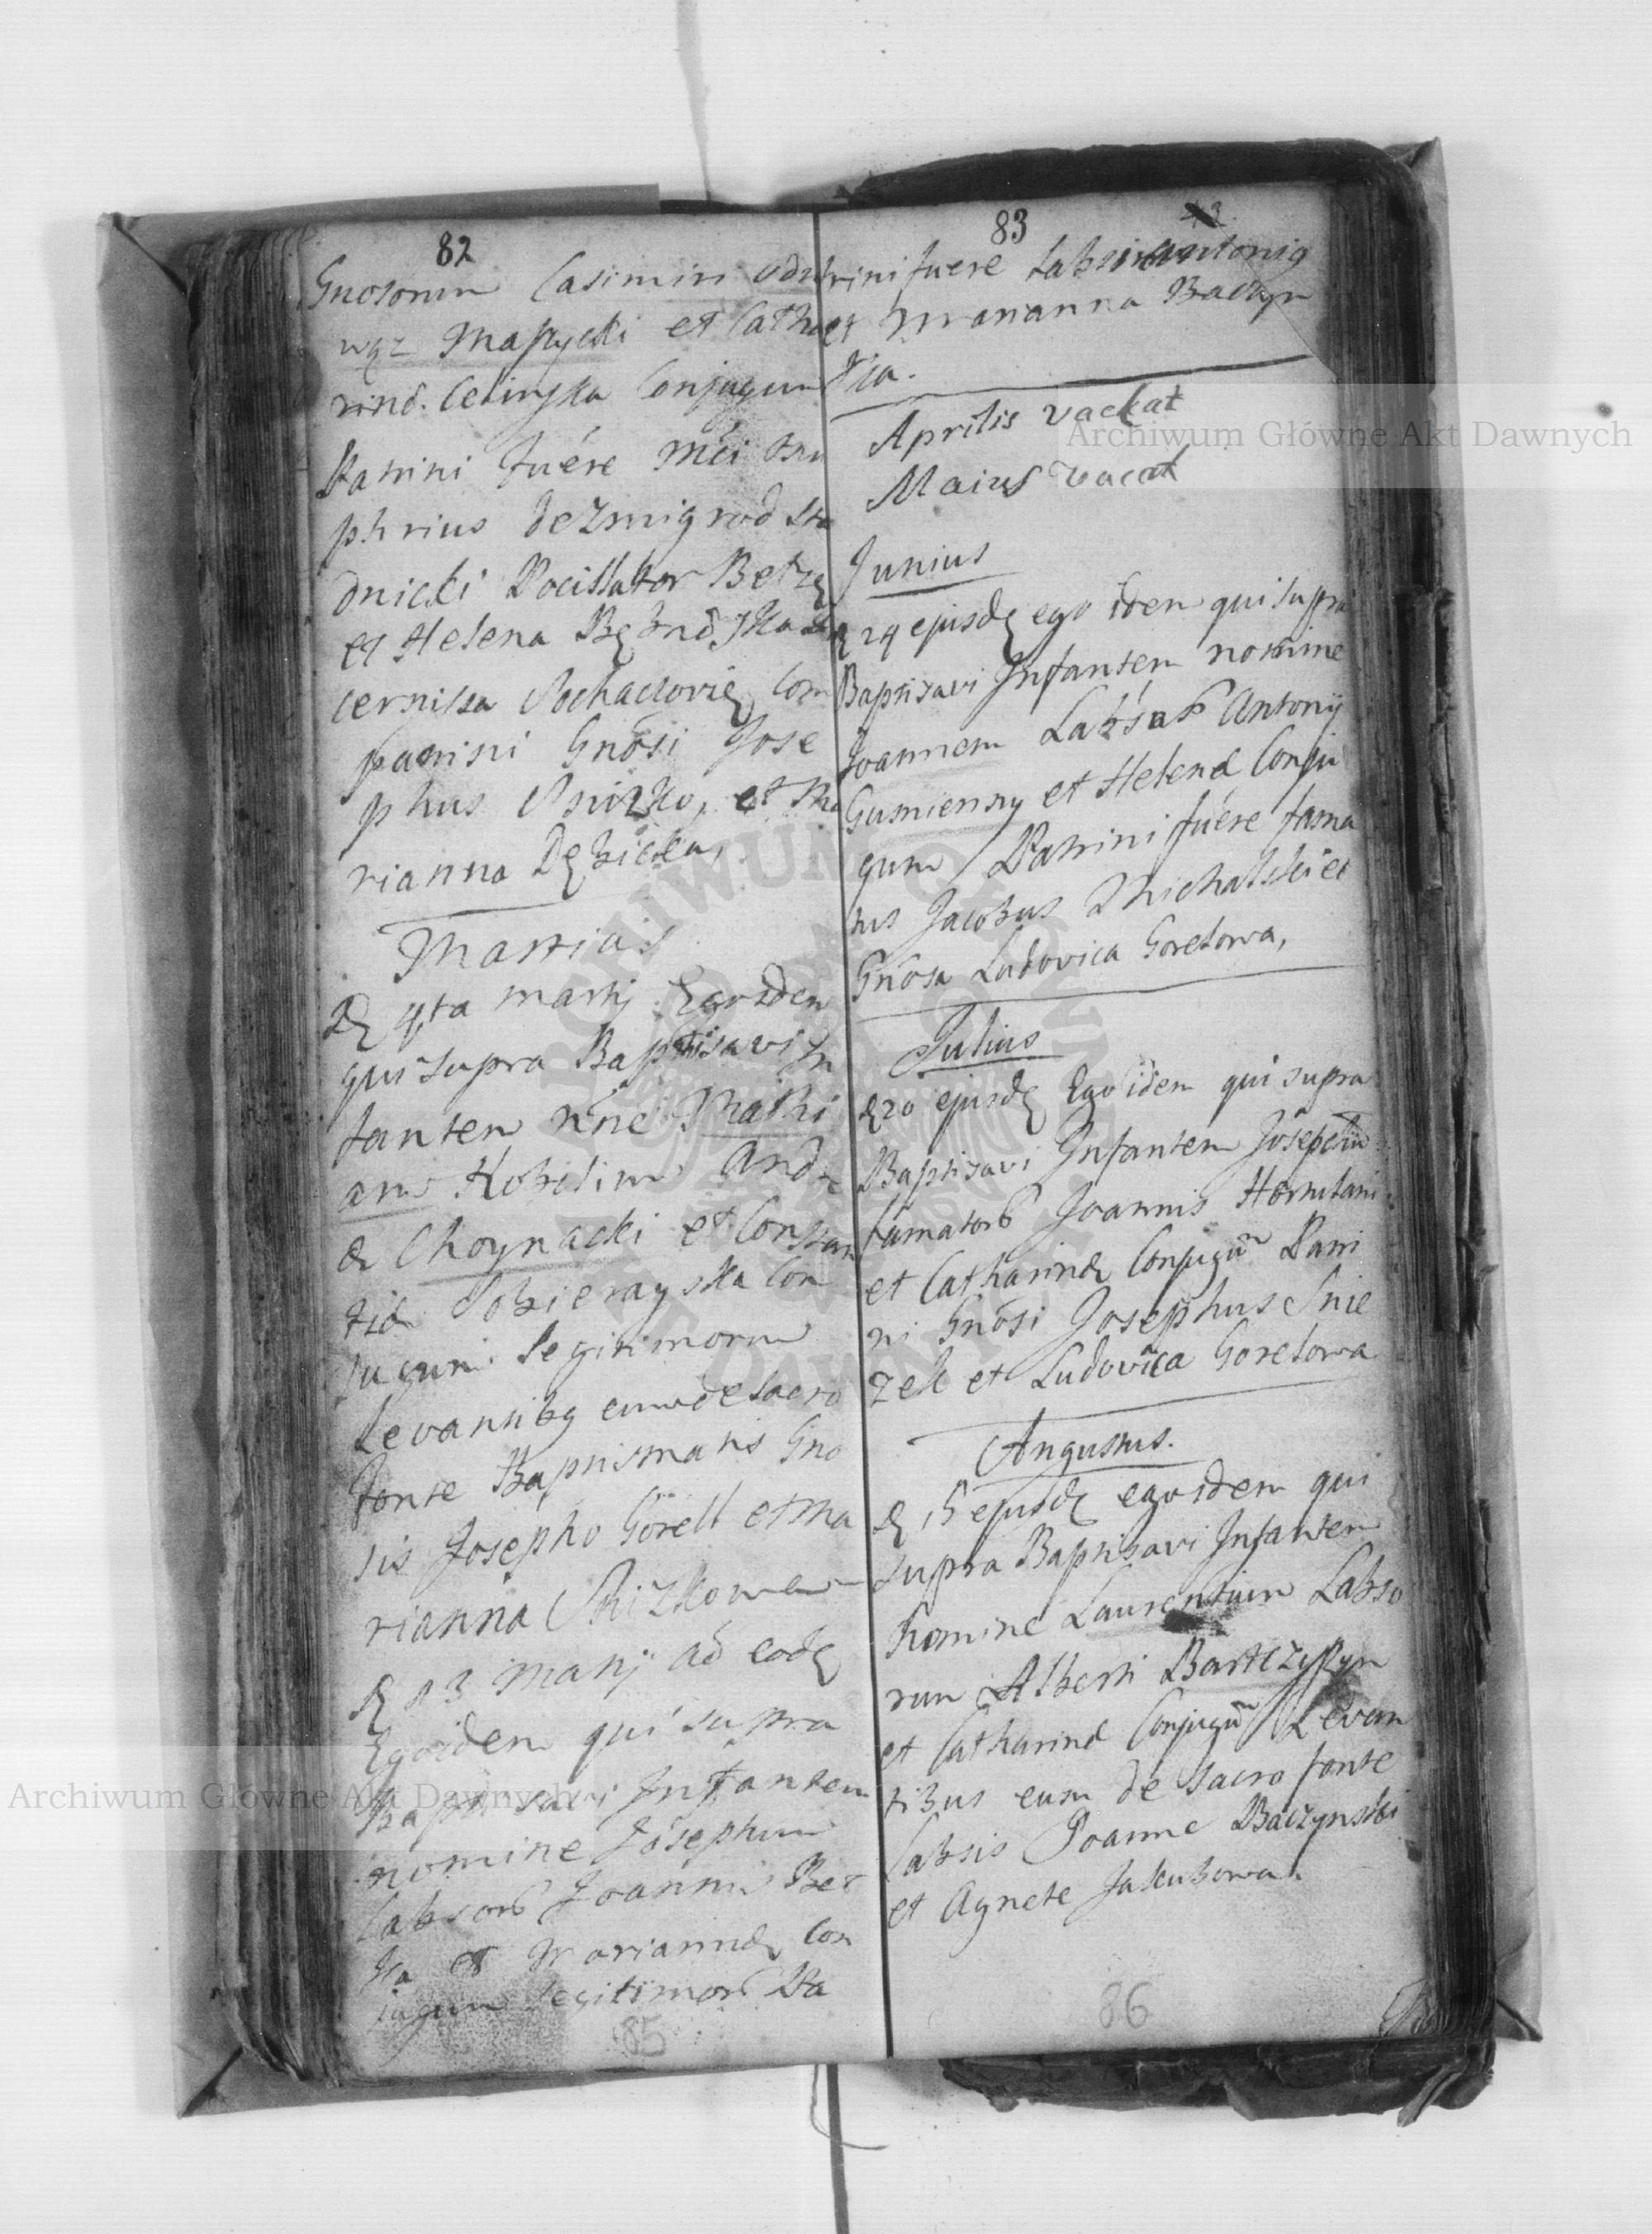 82
Gnosorum Casimiri Odro
wąz Mastycki et Catha
rinæ Celinska Conjugum
Patrini fuére Mci Onu
phrius de Zmigrod Sta
dnicki Pocillator Belzę
et Helena
cernilsa Sochaczovię Com
patrini Gnosi Jose
phus Snizko, et Ma
rianna Dębicka,
Martius
D 4ta martij Ego idem
qui supra Baptisavi In
fantem nne Mathi
am Nobilium Andr
æ Choynacki et Constan
tiæ Sobierayska Con
jugum legitimorum
Levantibg eum de sacro
fonte Baptismatis Gno
sis Josepho Görell et Ma
rianna Snizkowa
D 13 Martij ad eodę
Ego idem qui supra
Baptisavi Infantem
nomine Josephum
Labsor Joannis Bet
ka et Mariannæ Con
jugum legitimor Pa
85
83
trini fuere Labsi Antonig
et Marianna Baczyn
ska.
Aprilis vackat
Maius vacat
Junius
D 24 ejusdę ego idem qui supra
Baptisavi Infantem nomine
Joannem Labsor Antonij
Gumienny et Helenæ Conju
gum Patrini fuére fama
tus Jacobus Michalski et
Gnosa Ludovica Goretowa,
Julius
D 20 ejusdę Ego idem qui supra
Baptisavi Infantem Josephum
famator Joannis Hornulani
et Catharinæ Conjugum Patri
ni Gnosi Josephus Snie
zek et Ludovica Goretowa
Augustus.
D 15 ejusdę ego idem qui
supra Baptisavi Infantem
Nomine Laurentium Labso
rum Alberti Bartczyszyn
et Catharinæ Conjugum Levan
tibus eum de sacro fonte
Labsis Joanne Baczynski
et Agnete Jakubowa.
86
Archiwum Główne Akt Dawnych
Archiwum Główne Akt Dawnych